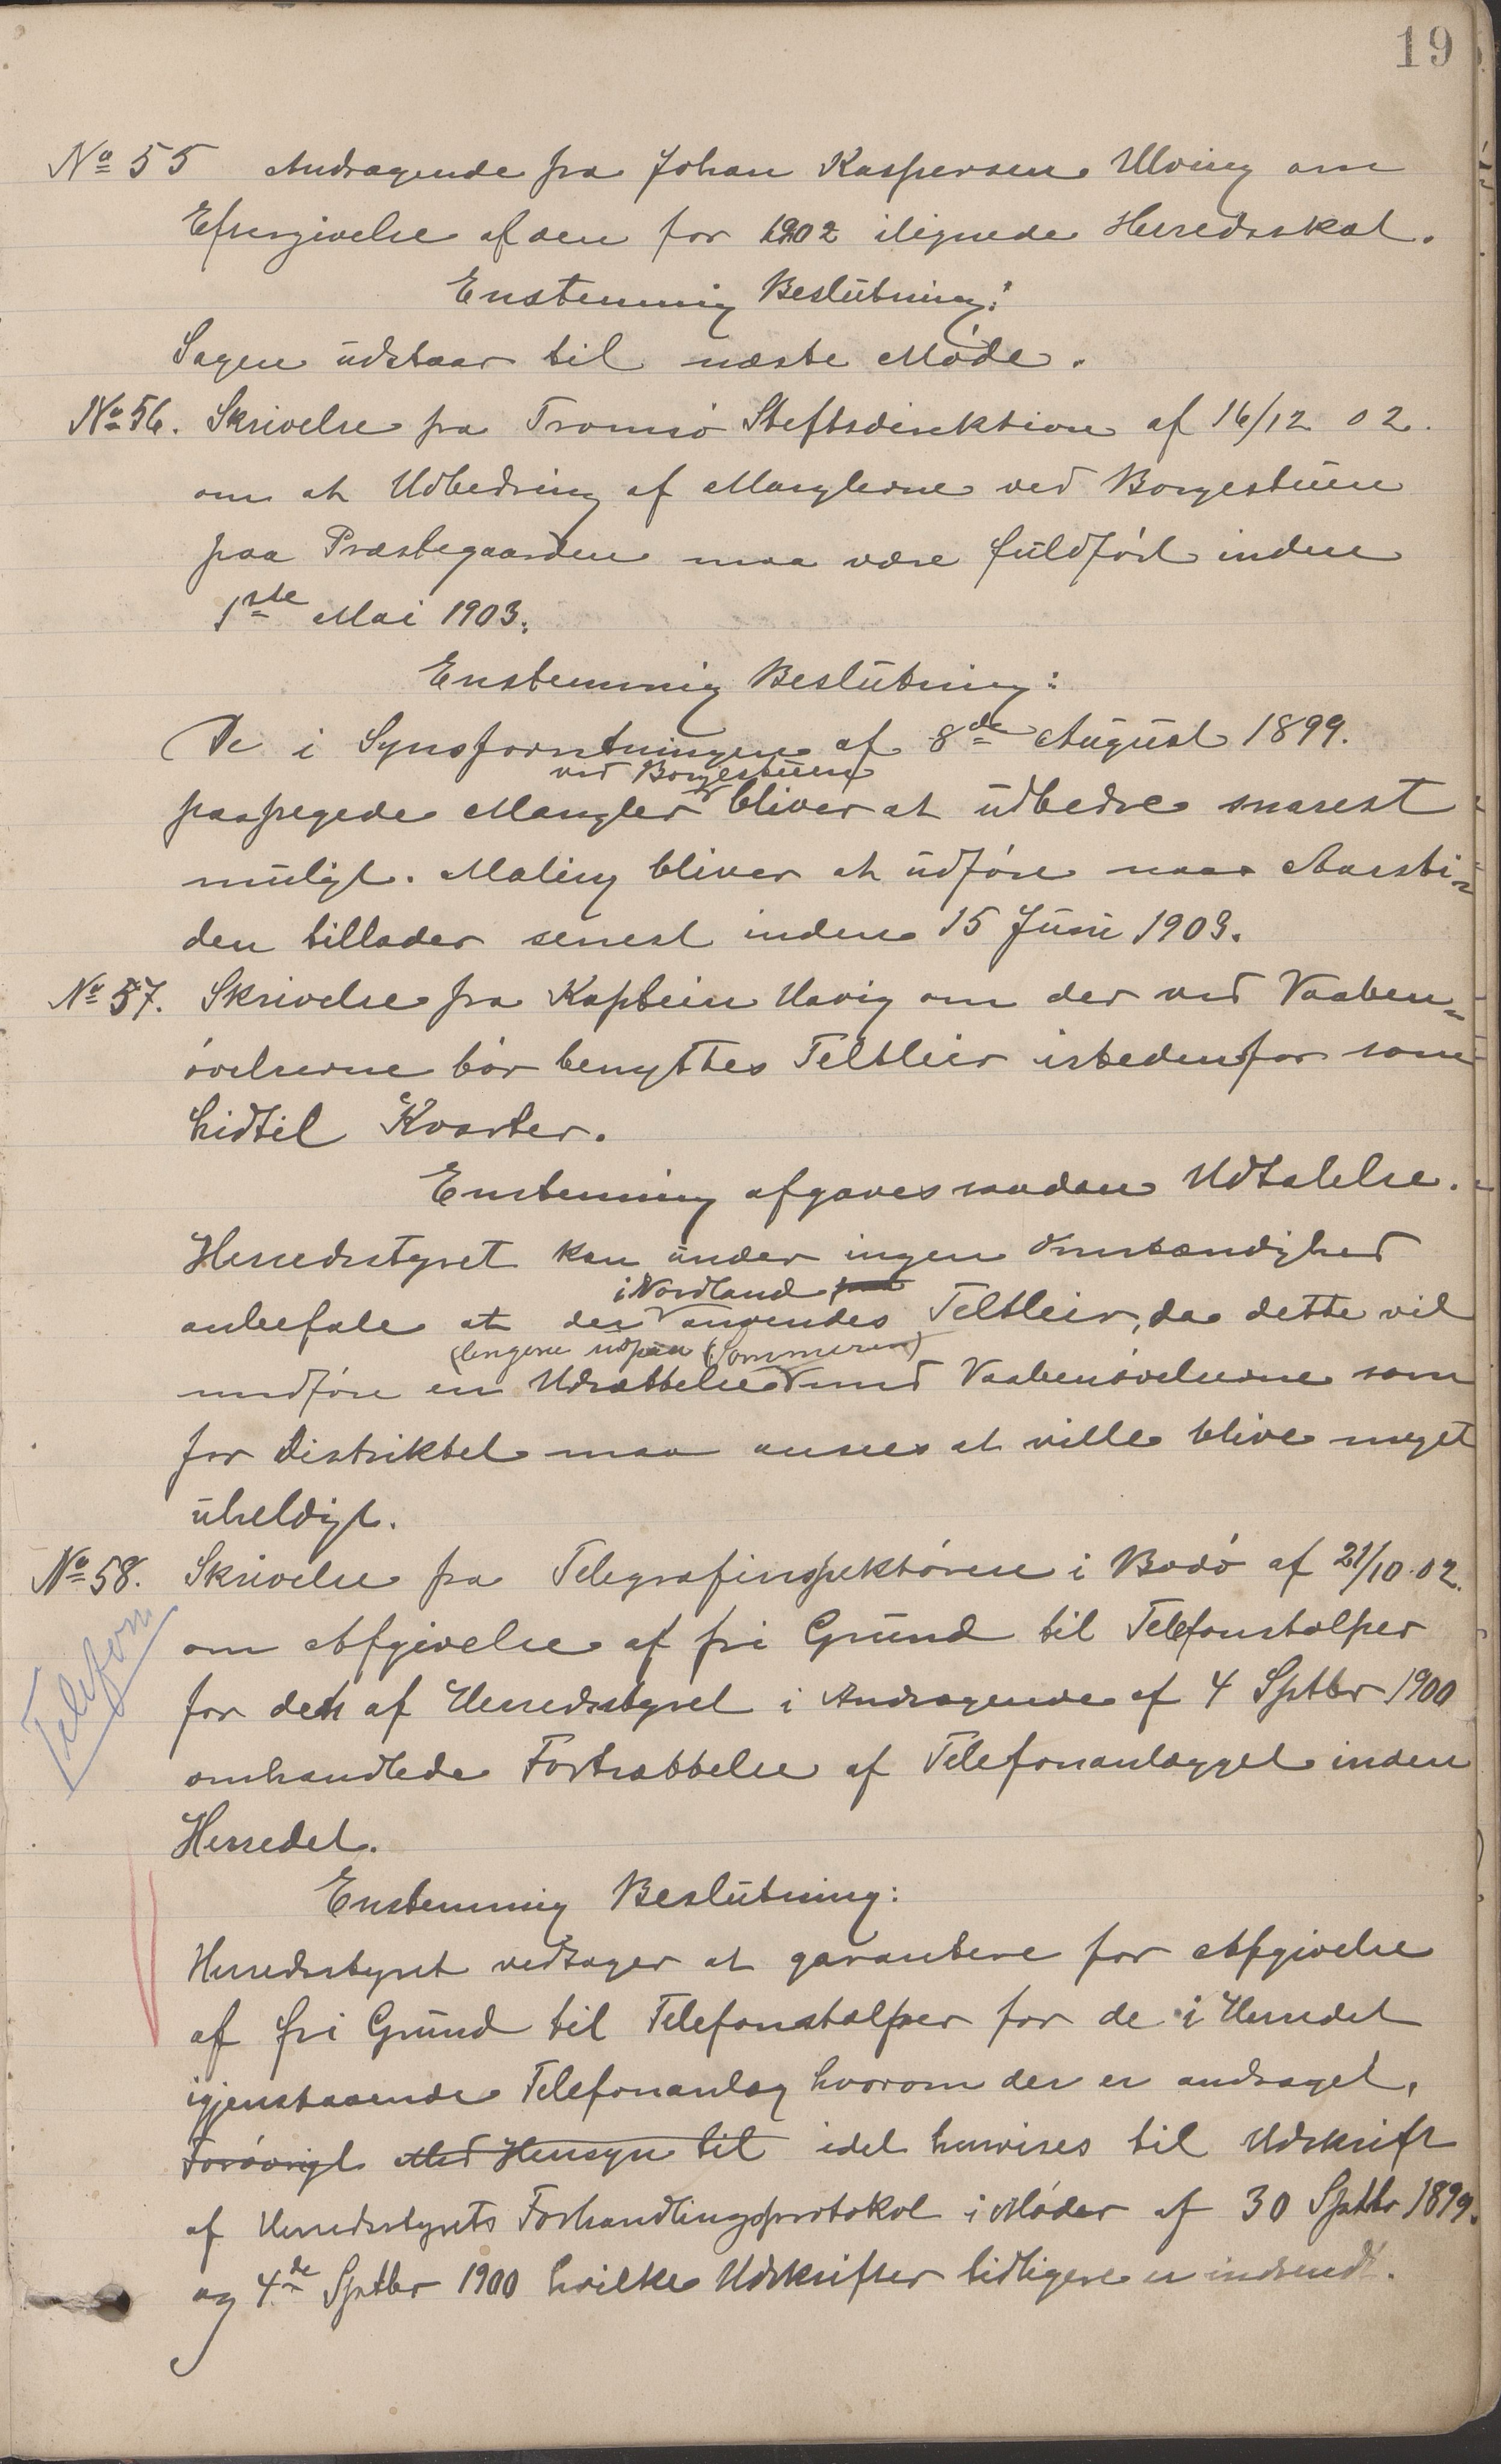 19
No 55 Andragende fra Johan Kaspersen Ulving om
Eftergivelse af den for 1902 ilignede Herredsskat.
Enstemmig Beslutning:
Sagen udstaar til næste Møde.
No 56. Skrivelse fra Tromsø Stiftsdirektion af 16/12 02.
om at Udbedring af Manglerne ved Borgestuen
paa Præstegaarden maa være fuldført inden
1ste Mai 1903.
Enstemmig Beslutning:
De i Synsforretningen af 8de August 1899.
ved Borgestuen
paapegede Mangler bliver at udbedre snarest
muligt. Maling bliver at udføre naar Aarsti-
den tillader senest inden 15 Juni 1903.
No 57. Skrivelse fra Kaptein Havig om der ved Vaaben-
øvelserne bør benyttes Teltleir istedenfor som
hidtil Kvarter.
Enstemmig afgaves saadan Udtalelse.
Herredsstyret kan under ingen Omstændighed
i Nordland
anbefale at der anvendes Teltleir, da dette vil
(længere udpaa Sommeren)
medføre en Udsættelse med Vaabenøvelserne som
for Distriktet maa ansees at ville blive meget
uheldigt.
No 58. Skrivelse fra Telegrafinspektøren i Bodø af 21/10.02.
Telefon
om Afgivelse af fri Grund til Telefonstolper
for den af Herredsstyret i Andragende af 4 Sptbr 1900
omhandlede Fortsættelse af Telefonanlægget inden
Herredet.
Enstemmig Beslutning:
Herredsstyret vedtager at garantere for Afgivelse
af fri Grund til Telefonstolper for de i Herredet
igjenstaaende Telefonanlæg hvorom der er andraget,
Forøvrigt Med Hensyn til idet henvises til Udskrift
af Herredsstyrets Forhandlingsprotokol i Møder af 30 Sptbr 1899.
og 4de Sptbr 1900 hvilke Udskrifter tidligere er indsendt.